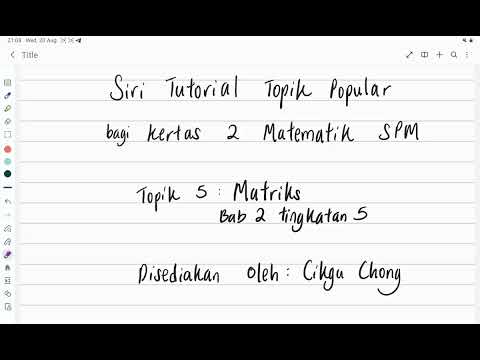 21:08 Wed, 20 Aug
Title
Siri Tutorial Topik Popular
bagi kertas 2 Matematik SPM
Topik 5 : Matriks
Bab 2 tingkatan 5
Disediakan oleh : Cikgu Chong